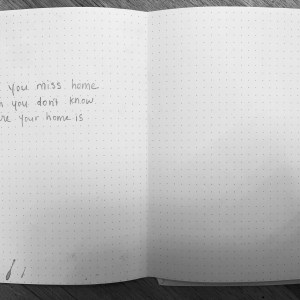 you miss home
you don't know
your home is